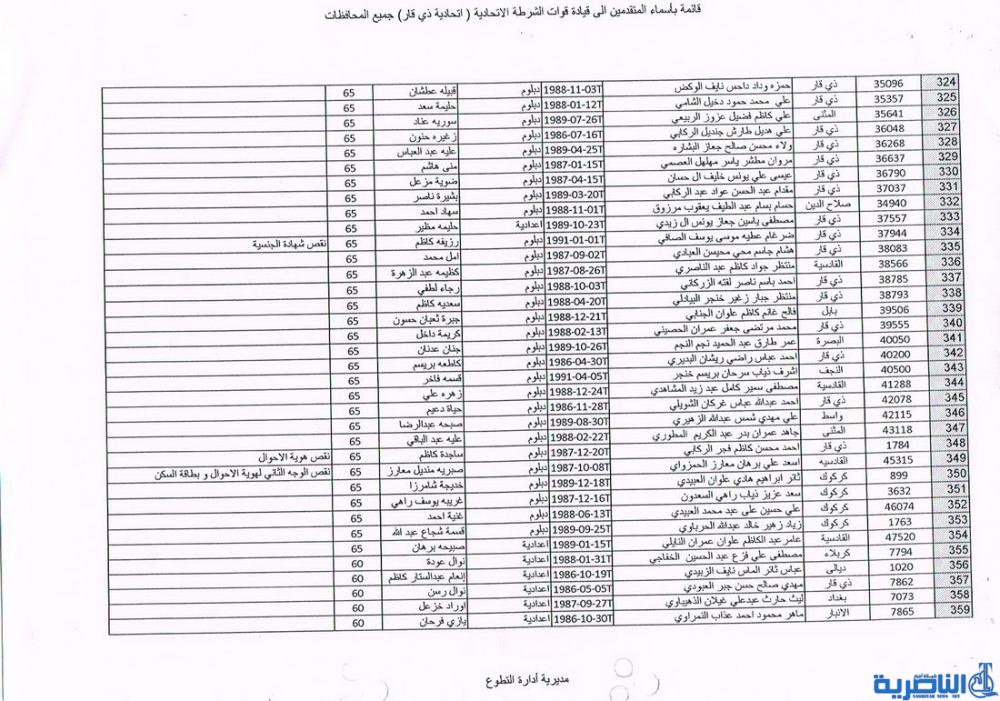 قائمة بأسماء المتقدمين الى قيادة قوات الشرطة الاتحادية ( اتحادية ذي قار) جميع المحافظات
324 35096 ذي قار حمزه وداد داحس نايف الوكض 1988-11-03T دبلوم قبيله عطشان 65
325 35357 ذي قار علي محمد حمود دخيل الشامي 1988-01-12T دبلوم حليمة سعد 65
326 35641 المثنى علي كاظم فضيل عزوز الربيعي 1989-07-26T دبلوم سوريه عناد 65
327 36048 ذي قار علي هديل طارش جنديل الركابي 1986-07-16T دبلوم زغيره حنون 65
328 36268 ذي قار ولاء محسن صالح جعاز البشاره 1989-04-25T دبلوم عليه عبد العباس 65
329 36637 ذي قار مروان مطشر ياسر مهلهل العصمي 1987-01-15T دبلوم منى هاشم 65
330 36790 ذي قار عيسى علي يونس خليف ال حسان 1987-04-15T دبلوم ضوية مزعل 65
331 37037 ذي قار مقدام عبد الحسن عواد عبد الركابي 1989-03-20T دبلوم بشيرة ناصر 65
332 34940 صلاح الدين حسام بسام عبد الطيف يعقوب مرزوق 1988-11-01T دبلوم سهاد احمد 65
333 37557 ذي قار مصطفى ياسين جعاز يونس ال زيدي 1989-10-23T اعدادية حليمه مطير 65
334 37944 ذي قار ضرغام عطيه موسى يوسف الصافي 1991-01-01T دبلوم رزيقه كاظم 65 نقص شهادة الجنسية
335 38083 ذي قار هشام جاسم محي محيسن العبادي 1987-09-02T دبلوم امل محمد 65
336 38566 القادسية منتظر جواد كاظم عبد الناصري 1987-08-26T دبلوم كظيمه عبد الزهرة 65
337 38785 ذي قار احمد باسم ناصر لفته الزركاني 1988-10-03T دبلوم رجاء لطفي 65
338 38793 ذي قار منتظر جبار زغير خنجر البيادلي 1988-04-20T دبلوم سعديه كاظم 65
339 39506 بابل فالح غانم كاظم علوان الجنابي 1988-12-21T دبلوم جبرة ثعبان حسون 65
340 39555 ذي قار محمد مرتضى جعفر عمران الحصيني 1988-02-13T دبلوم كريمة داخل 65
341 40050 البصرة عمر طارق عبد الحميد نجم النجم 1989-10-26T دبلوم جنان عدنان 65
342 40200 ذي قار احمد عباس راضي ريشان البديري 1986-04-30T دبلوم كاطعه بريسم 65
343 40500 النجف اشرف ذياب سرحان بريسم خنجر 1991-04-05T دبلوم قسمه فاخر 65
344 41288 القادسية مصطفى سمير كامل عبد زيد المشاهدي 1988-12-24T دبلوم زهره علي 65
345 42078 ذي قار احمد عبدالله عباس غركان الشويلي 1986-11-28T دبلوم حياة دعيم 65
346 42115 واسط علي مهدي شمس عبدالله الزهيري 1989-08-30T دبلوم صبحه عبدالرضا 65
347 43118 المثنى جاهد عمران بدر عبد الكريم المطوري 1988-02-22T دبلوم عليه عبد الباقي 65
348 1784 ذي قار احمد محسن كاظم فجر الركابي 1987-12-20T دبلوم ساجدة كاظم 65 نقص هوية الاحوال
349 45315 القادسيه اسعد علي برهان معارز الحمزواي 1987-10-08T دبلوم صبريه منديل معارز 65 نقص الوجه الثاني لهوية الاحوال و بطاقة السكن
350 899 كركوك ثائر ابراهيم هادي علوان العبيدي 1989-12-18T دبلوم خديجة شامرزا 65
351 3632 كركوك سعد عزيز ذياب راهي السعدون 1987-12-16T دبلوم غريبه يوسف راهي 65
352 46074 كركوك علي حسين علي عبد محمد العبيدي 1988-06-13T دبلوم غنية احمد 65
353 1763 كركوك زياد زهير خالد عبدالله الحرباوي 1989-09-25T دبلوم قسمة شجاع عبد الله 65
354 47520 القادسية عامر عبد الكاظم علوان عمران النايلي 1989-01-15T اعدادية صبيحه برهان 65
355 7794 كربلاء مصطفى علي فزع عبد الحسين الخفاجي 1988-01-31T اعدادية نوال عودة 60
356 1020 ديالى عباس ثائر الماس نايف الزبيدي 1986-10-19T اعدادية إنعام عبدالستار كاظم 60
357 7862 ذي قار مهدي صالح حسن جبر العبودي 1986-05-05T اعدادية نوال رسن 60
358 7073 بغداد ليث حارث عبدعلي غيلان الذهيباوي 1987-09-27T اعدادية اوراد خزعل 60
359 7865 الانبار ماهر محمود احمد عذاب النمراوي 1986-10-30T اعدادية يازي فرحان 60
مديرية أدارة التطوع
شبكة أخبار
الناصرية
NASIRIYAH NEWS NET